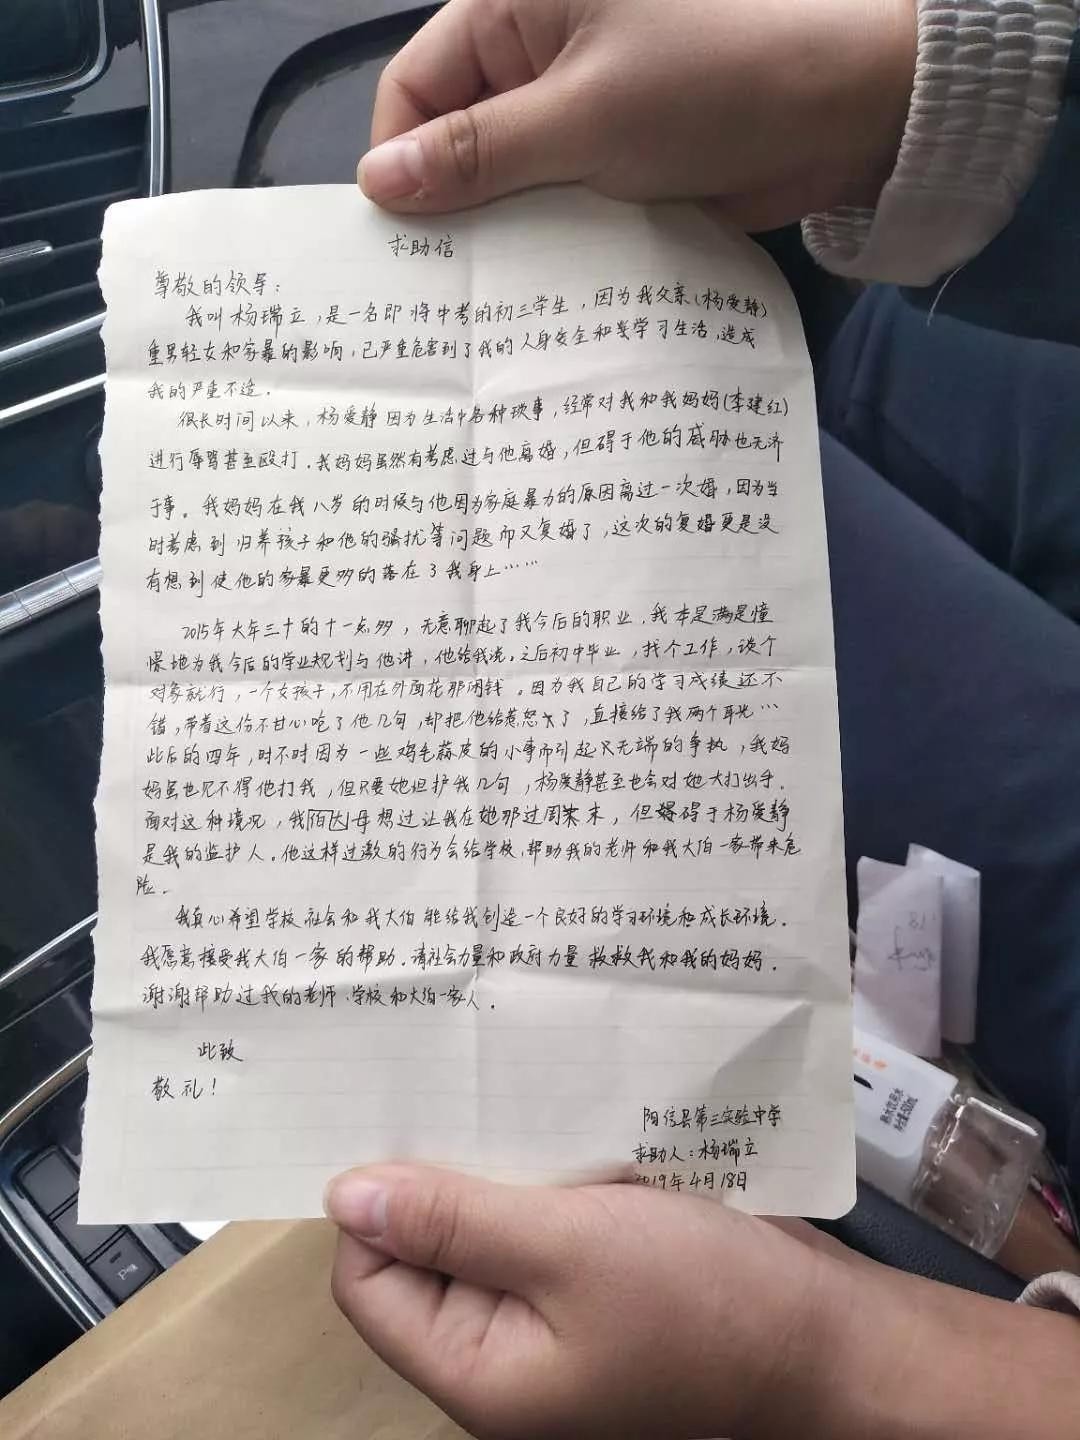 求助信
尊敬的领导：
我叫杨瑞立，是一名即将中考的初三学生，因为我父亲(杨爱静)
重男轻女和家暴的影响，已严重危害到了我的人身安全和学习生活，造成
我的严重不适。
很长时间以来，杨爱静因为生活中各种琐事，经常对我和我妈妈(李建红)
进行辱骂甚至殴打．我妈妈虽然有考虑过与他离婚，但碍于他的威胁也无济
于事。我妈妈在我八岁的时候与他因为家庭暴力的原因离过一次婚，因为当
时考虑到归养孩子和他的骚扰等问题而又复婚了，这次的复婚更是没
有想到使他的家暴更多的落在了我身上……
2015年大年三十的十一点多，无意聊起了我今后的职业．我本是满是憧
憬地为我今后的学业规划与他讲，他给我说．之后初中毕业，找个工作，谈个
对象就行，一个女孩子，不用在外面花那闲钱。因为我自己的学习成绩还不
错，带着这份不甘心呛了他几句，却把他给惹怒了，直接给了我两个耳光…
此后的四年，时不时因为一些鸡毛蒜皮的小事而引起无端的争执，我妈
妈虽也见不得他打我，但只要她袒护我几句，杨爱静甚至也会对她大打出手．
面对这种境况，我伯母想过让我在她那过周末，但碍于杨爱静
是我的监护人．他这样过激的行为会给学校、帮助我的老师和我大伯一家带来危
险．
我真心希望学校社会和我大伯能给我创造一个良好的学习环境和成长环境．
我愿意接受我大伯一家的帮助．请社会力量和政府力量救救我和我的妈妈．
谢谢帮助过我的老师、学校和大伯一家人．
此致
敬礼！
阳信县第三实验中学
求助人：杨瑞立
2019年4月18日